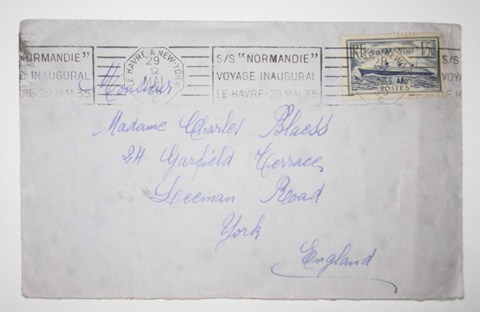 ORMANDIE"
INAUGURAL
29 MAI 35
LE HAVRE A NEW-YORK
29
MAI
S/S "NORMANDIE"
VOYAGE INAUGURAL
LE HAVRE-29 MAI 35
RF
1,50
POSTES
Madame Charles Blaess
24 Garfield Terrace
Leeman Road
York
England